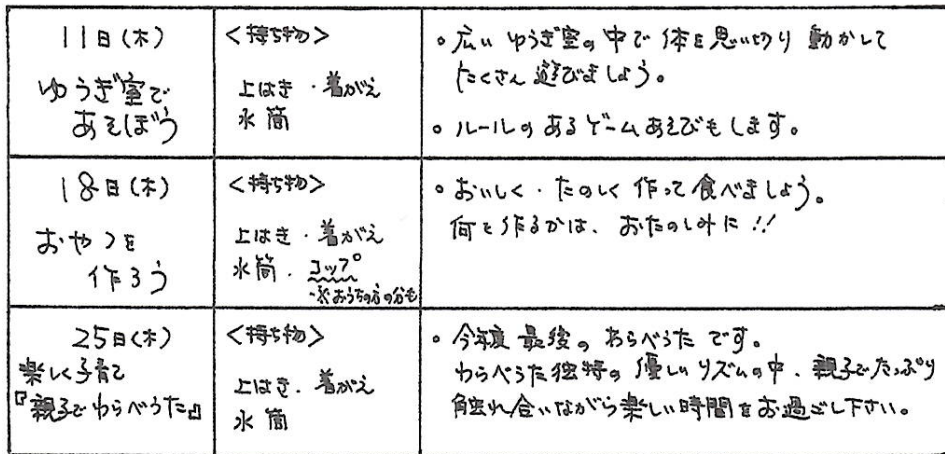 11日(木)
ゆうぎ室で
あそぼう
<持ち物>
上はき・着がえ
水筒
。広い ゆうぎ室の中で 体を思い切り 動かして
たくさん 遊びましょう。
。ルールの あるゲームあそびもします。
18日(木)
おやつを
作ろう
<持ち物>
上はき・着がえ
水筒・コップ
※おうちの方の分も
。おいしく・たのしく 作って 食べましょう。
何を作るかは、おたのしみに!!
25日(木)
楽しく子育て
『親子でわらべうた』
<持ち物>
上はき・着がえ
水筒
。今年度 最後の わらべうた です。
わらべうた独特の 優しいリズムの中、親子でたっぷり
触れ合いながら楽しい時間をお過ごし下さい。